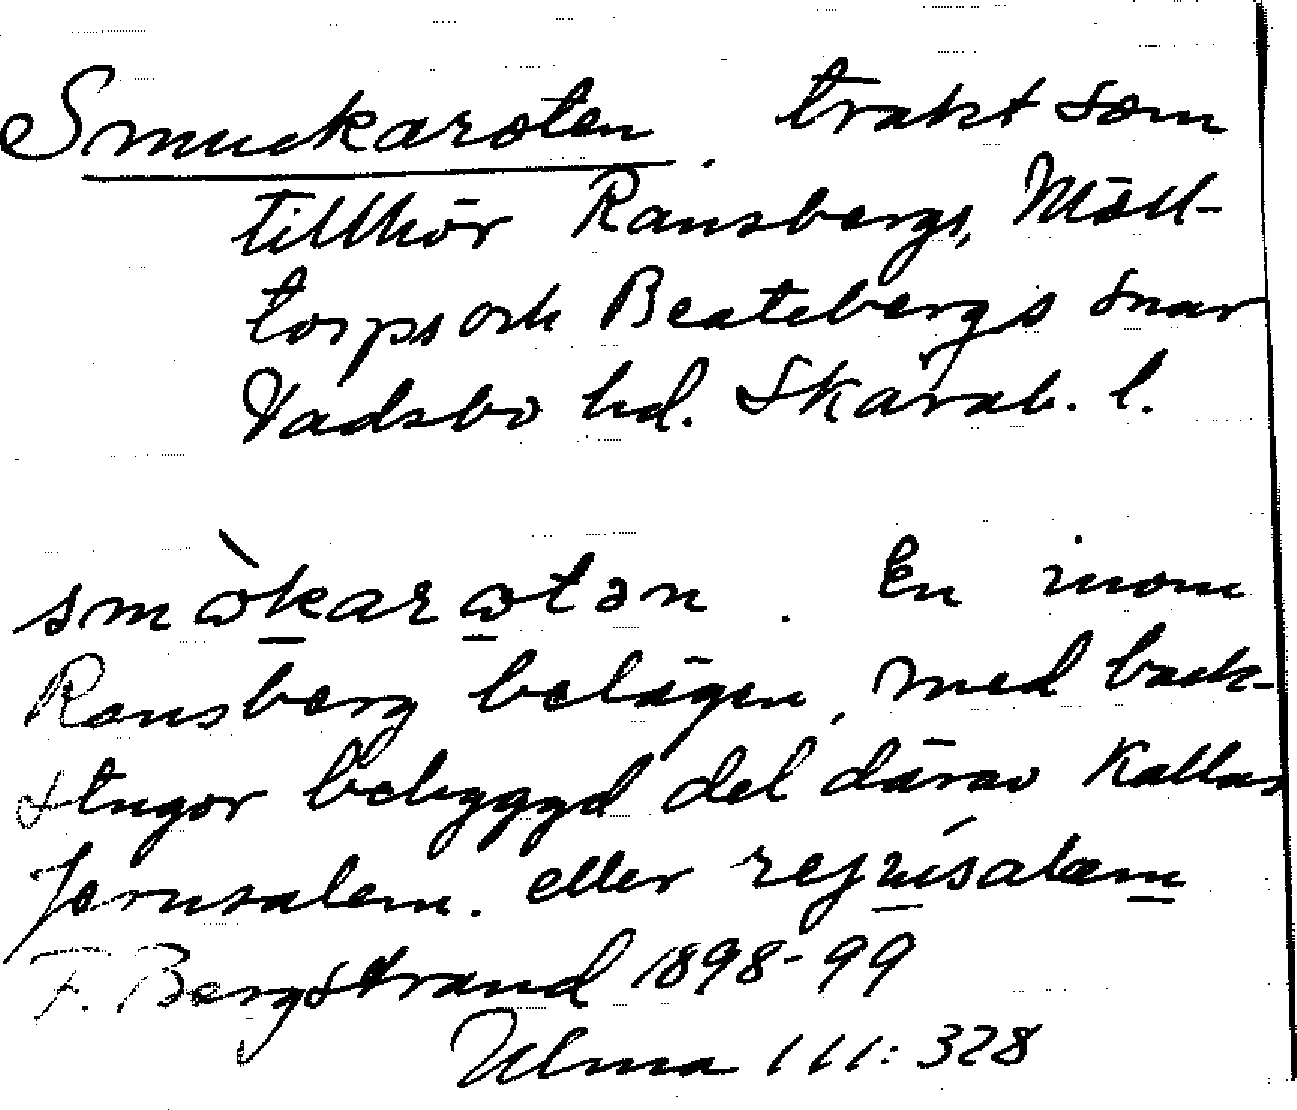 Smuckaroten. trakt som
tillhör Ransbergs, Möll-
torps och Beatebergs snar
Vadsbo hd. Skarab. l.
En inom
Ransberg belägen, med back-
stugor bebyggd del därav kallas
Jerusalem. eller
F. Bergstrand 1898-99
Ulma 111:328